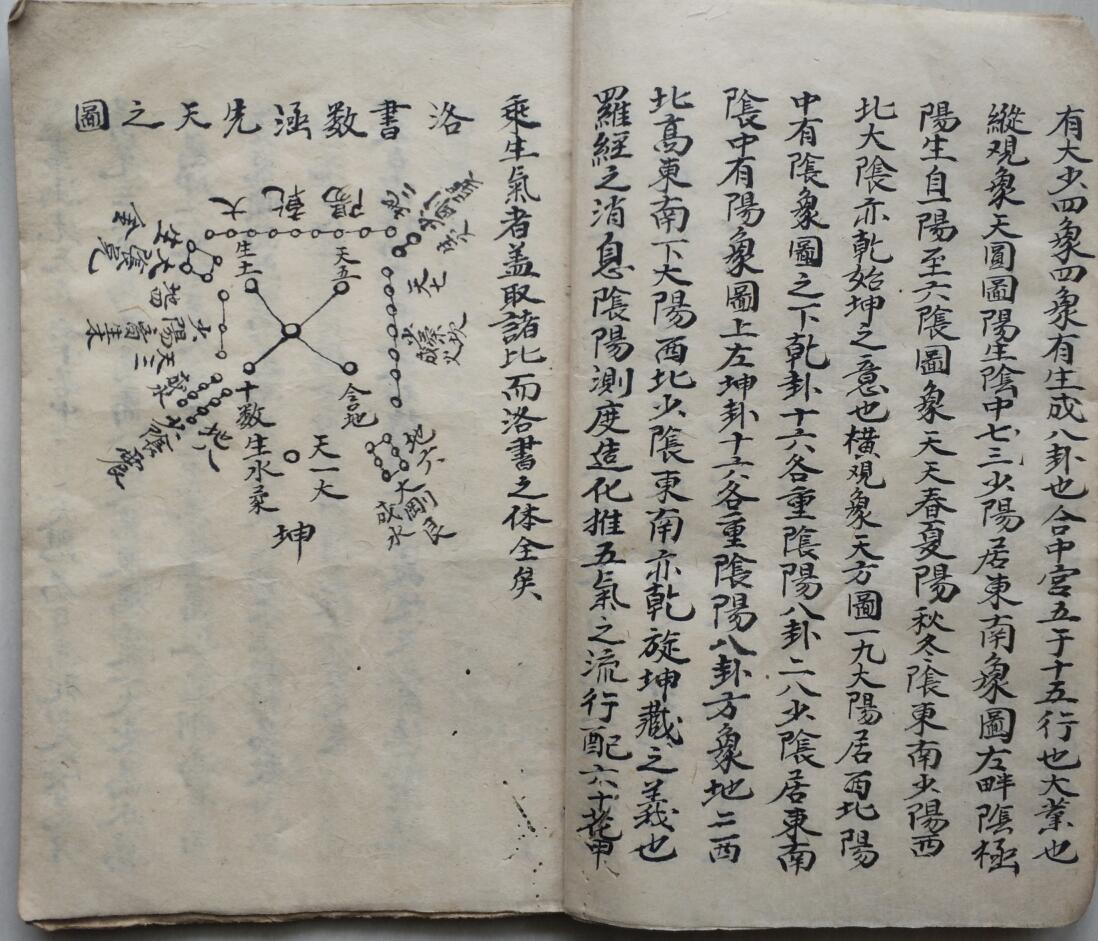 有大少四象四象有生成八卦也合中宮五于十五行也大業也
縱观象天圓圖陽生陰中七三少陽居東南象圖左畔陰極
陽生自一陽至六陰圖象天天春夏陽秋冬陰東南少陽西
北大陰亦乾始坤之意也横观象天方圖一九大陽居西北陽
中有陰象圖之下乾卦十六各重陰陽八卦二八少陰居東南
陰中有陽象圖上左坤卦十六各重陰陽八卦方象地二西
北高東南下大陽西北少陰東南亦乾旋坤藏之義也
羅經之消息陰陽測度造化推五氣之流行配六十花甲
乘生氣者盖取諸比而洛書之体全矣
洛書数涵先天之圖
大乾陽
天七
生土
天五
地四
天三
少陽
地八
含地
十数生水柔
天一大
地六
大剛艮
成水
坤